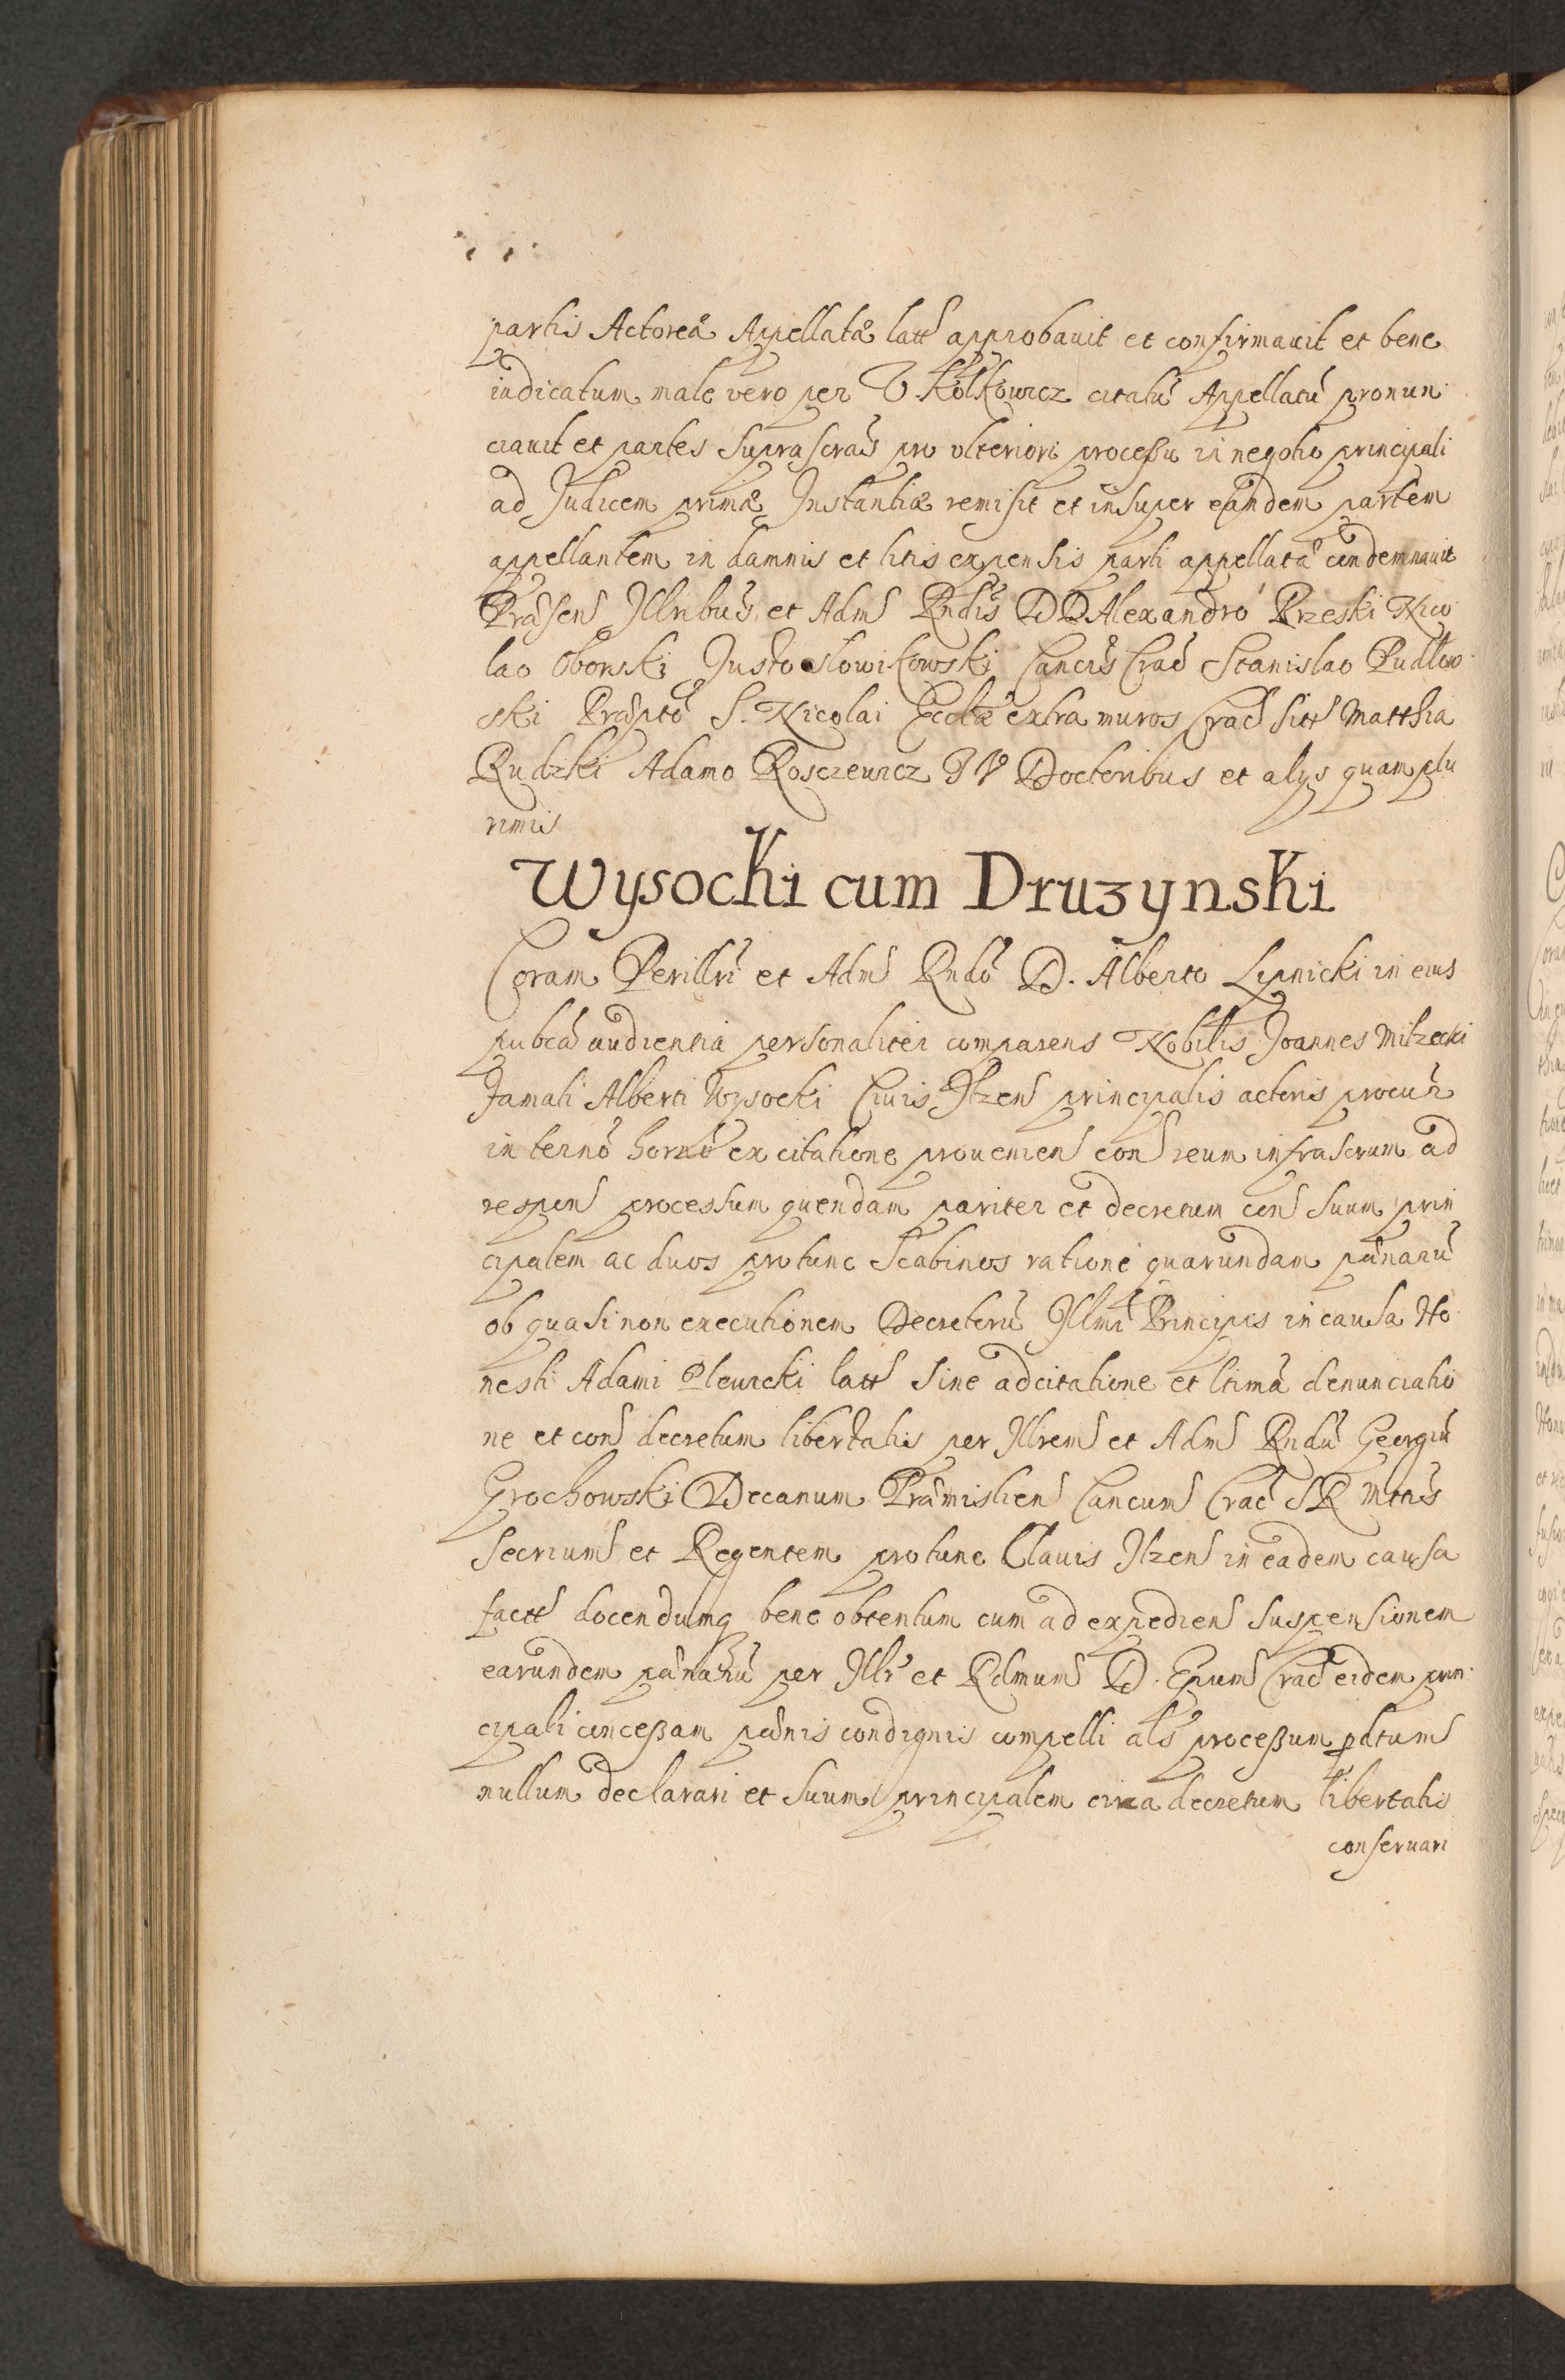 partis Actoreæ Appellatæ latt approbauit et confirmauit et bene
iudicatum male vero per V. Kołkowicz citatū Appellatū pronun
ciauit et partes suprascrás pro vlteriori processu in negotio principali
ad Judicem primæ Instantiæ remisit et insuper eandem partem
appellantem in damnis et litis expensis parti appellatæ condemnauit
Præsen Jllribus et Adm Rndis DD Alexandro Brzeski Nico
lao Oborski Justo Slowikowski Cancis Crac Stanislao Pudlow
ski Præpto S. Nicolai Ecclæ extra muros Crac sitt Matthia
Rudzki Adamo Rosczewicz J V Doctoribus et alys quamplu
rimis
Wysocki cum Druzynski
Coram Perillri et Adm Rndo D. Alberto Lipnicki in eius
pubca audientia personaliter comparens Nobilis Joannes Milzecki
Famati Alberti Wysocki Ciuis Jlzen principalis actoris procur
in termo horno ex citatione prouenien con reum infrascrum ad
respon processum quendam pariter et decretum con suum prin
cipalem ac duos protunc Scabinos ratione quarundam pænarū
ob quasi non executionem Decretorū Jllmi Principis in causa Ho
nesti Adami Plewicki latt sine adcitatione et ltima denunciatio
ne et con decretum libertatis per Jllrem et Adm Rndū Georgiū
Grochowski Decanum Præmislien Cancum Crac S R Mttis
Secrium et Regentem protunc Clauis Jlzen in eadem causa
factt docendumq bene obtentum cum ad expedien suspensionem
earundem pænarū per Jllr et Rdmum D. Epum Crac eidem prin
cipali concessam pænis condignis compelli als processum pdtum
nullum declarari et suum principalem circa decretum libertatis
conseruari